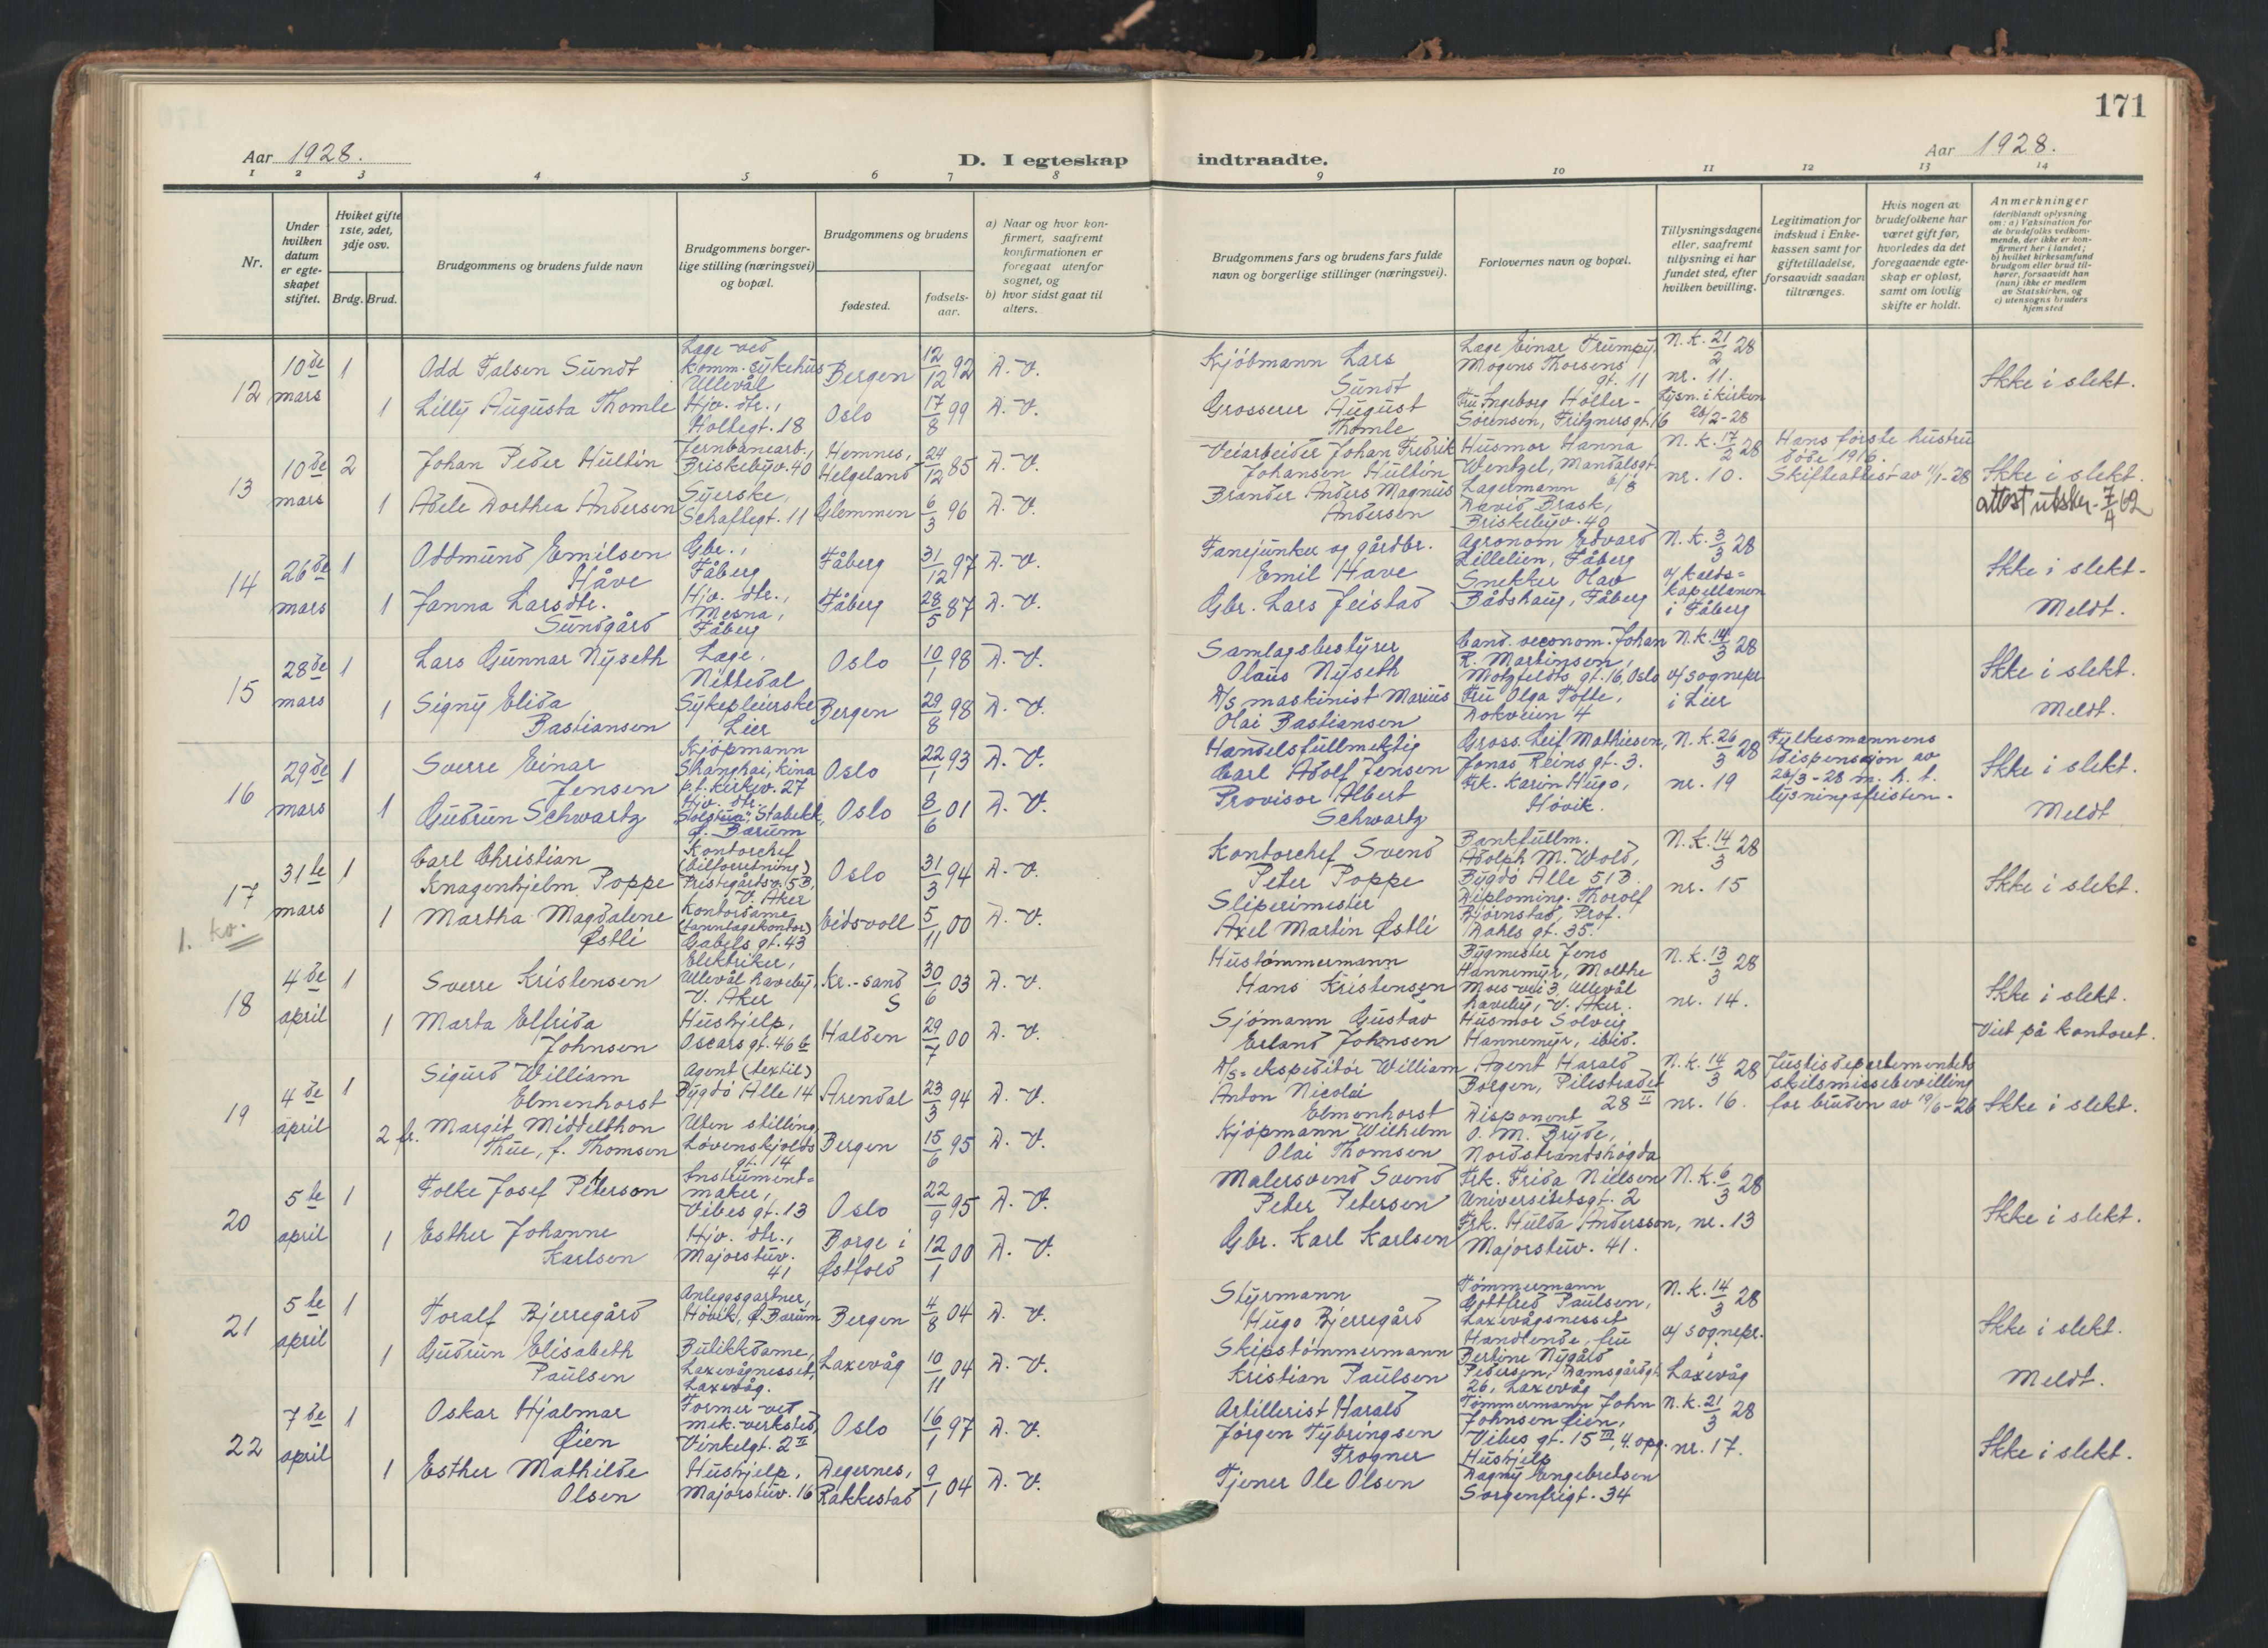 171
Aar 1928.
D. I egteskap indtraadte.
Aar 1928.
1 2 3 4 5 6 7 8 9 10 11 12 13 14
Nr.
Under
hvilken
datum
er egte-
skapet
stiftet.
Hviket gifte
1ste, 2det,
3dje osv.
Brdg. Brud.
Brudgommens og brudens fulde navn
Brudgommens borger-
lige stilling (næringsvei)
og bopæl.
Brudgommens og brudens
fødested.
fødsels-
aar.
a) Naar og hvor kon-
firmert, saafremt
konfirmationen er
foregaat utenfor
sognet, og
b) hvor sidst gaat til
alters.
Brudgommens fars og brudens fars fulde
navn og borgerlige stillinger (næringsvei).
Forlovernes navn og bopæl.
Tillysningsdagene
eller, saafremt
tillysning ei har
fundet sted, efter
hvilken bevilling.
Legitimation for
indskud i Enke-
kassen samt for
giftetilladelse,
forsaavidt saadan
tiltrænges.
Hvis nogen av
brudefolkene har
været gift før,
hvorledes da det
foregaaende egte-
skap er opløst,
samt om lovlig
skifte er holdt.
Anmerkninger
(deriblandt oplysning
om: a) Vaksination for
de brudefolks vedkom-
mende, der ikke er kon-
firmert her i landet;
b) hvilket kirkesamfund
brudgom eller brud til-
hører, forsaavidt han
(hun) ikke er medlem
av Statskirken, og
c) utensogns bruders
hjemsted
12
10de
mars
1
Odd Falsen Sundt
Læge ved
komm. sykehus
Ullevål
Bergen
12/12 92
D. V.
Kjöbmann Lars
Sundt
Læge Einar Trumpy,
Mogens Thorsens
gt. 11
N. k. 21/2 28
nr. 11.
Ikke i slekt.
1
Lilly Augusta Thomle
Hjv. dtr.,
Holtegt. 18
Oslo
17/8 99
D. V.
Grosserer August
Thomle
Fru Ingeborg Holter-
Sörensen, Fritzners gt. 16
Lysn. i kirken
26/2-28
13
10de
mars
2
Johan Peder Hultin
Jernbanearb.,
Briskebyv. 40
Hemnes,
Helgeland
24/12 85
D. V.
Veiarbeider Johan Fredrik
Johansen Hultin
Husmor Hanna
Wentzel, Mandalsgt.
N. k. 17/2 28
nr. 10.
Hans første hustru
døde 1916.
Skifteattest av 11/1-28
Ikke i slekt.
attest utskr. 7/4 62
1
Adele Dorthea Andersen
Syerske,
Schaftegt. 11
Glemmen
6/3 96
D. V.
Brander Anders Magnus
Andersen
Lagermann
David Brask,
Briskebyv. 40
14
26de
mars
1
Oddmund Emilsen
Håve
Gbr.,
Fåberg
Fåberg
31/12 97
D. V.
Fanejunker og gårdbr.
Emil Have
Agronom Edvard
Lillelien, Fåberg
N. k. 3/3 28
v/ kalds=
kapellanen
i Fåberg
Ikke i slekt.
Meldt.
1
Janna Larsdtr.
Sundgård
Hjv. dtr.,
Mesna,
Fåberg
Fåberg
28/5 87
D. V.
Gbr. Lars Jeistad
Snekker Olav
Bådshaug, Fåberg
15
28de
mars
1
Lars Gunnar Nyseth
Læge,
Nittedal
Oslo
10/1 98
D. V.
Samlagsbestyrer
Olaus Nyseth
Cand. oeconom. Johan
R. Martinsen,
Motzfeldts gt. 16, Oslo
N. k. 14/3 28
v/ sognepr.
i Lier
Ikke i slekt.
Meldt.
1
Signy Elida
Bastiansen
Sykepleierske
Lier
Bergen
29/8 98
D. V.
D/S maskinist Marius
Olai Bastiansen
Fru Olga Tofte,
Dokveien 4
16
29de
mars
1
Sverre Einar
Jensen
Kjöpmann
Shanghai, Kina
p.t. Kirkev. 27
Oslo
22/1 93
D. V.
Handelsfullmektig
Carl Adolf Jensen
Gross. Leif Mathiesen,
Jonas Reins gt. 3.
N. k. 26/3 28
nr. 19
Fylkesmannens
dispensasjon av
26/3-28 m. h. t.
lysningsfristen.
Ikke i slekt.
Meldt
1
Gudrun Schwartz
Hjv. dtr.
"Solstua", Stabekk,
Ø. Bærum
Oslo
8/6 01
D. V.
Provisor Albert
Schwartz
Frk. Karin Hugo,
Hövik.
17
1. ko.
31te
mars
1
Carl Christian
Knagenhjelm Poppe
Kontorchef
(bilforretning)
Prestegårdsv. 5B,
V. Aker
Oslo
31/3 94
D. V.
Kontorchef Svend
Peter Poppe
Bankfullm.
Adolph M. Wold,
Bygdö Alle 51B.
N. k. 14/3 28
nr. 15
Ikke i slekt.
1
Martha Magdalene
Østli
Kontordame
(tannlægekontor)
Gabels gt. 43
Eidsvoll
5/11 00
D. V.
Sliperimester
Axel Martin Østli
Diploming. Thorolf
Bjørnstad, Prof.
Dahls gt. 35.
18
4de
april
1
Sverre Kristensen
Elektriker,
Ullevål haveby,
V. Aker
Kr.-sand
S
30/6 03
D. V.
Hustömmermann
Hans Kristensen
Bygmester Jens
Hannemyr, Molthe
Moes vei 3 Ullevål
haveby, V. Aker.
N. k. 13/3 28
nr. 14.
Ikke i slekt.
Viet på kontoret.
1
Marta Elfrida
Johnsen
Hushjelp,
Oscars gt. 46 b
Halden
29/7 00
D. V.
Sjömann Gustav
Erland Johnsen
Husmor Solveig
Hannemyr, ibid.
19
4de
april
1
Sigurd William
Elmenhorst
Agent (textil)
Bygdö Alle 14
Arendal
23/3 94
D. V.
D/S=ekspeditör William
Anton Nicolai
Elmenhorst
Agent Harald
Borgen, Pilestrædet
28 II
N. k. 14/3 28
nr. 16.
Justisdepartementets
skilsmissebevilling
for bruden av 19/6-26
Ikke i slekt.
2 fr.
Margit Middelthon
Thue, f. Thomsen
Uten stilling,
Løvenskjolds
gt. 14
Bergen
15/6 95
D. V.
Kjöpmann Wilhelm
Olai Thomsen
Disponent
O. M. Bryde,
Nordstrandshögda
20
5te
april
1
Folke Josef Peterson
Instrument=
maker,
Vibes gt. 13
Oslo
22/9 95
D. V.
Malersvend Svend
Peter Petersen
Frk. Frida Nielsen
Universitetsgt. 2
N. k. 6/3 28
nr. 13
Ikke i slekt.
1
Esther Johanne
Karlsen
Hjv. dtr.,
Majorstuv.
41
Borge i
Østfold
12/1 00
D. V.
Gbr. Karl Karlsen
Frk. Hulda Andersson,
Majorstuv. 41.
21
5te
april
1
Toralf Bjerregård
Anleggsgartner,
Hövik, Ø. Bærum
Bergen
4/8 04
D. V.
Styrmann
Hugo Bjerregård
Tömmermann
Gottfred Paulsen,
Laxevågnesset
N. k. 14/3 28
v/ sognepr.
i
Laxevåg
Ikke i slekt.
Meldt.
1
Gudrun Elisabeth
Paulsen
Butikkdame,
Laxevågnesset,
Laxevåg.
Laxevåg
10/11 04
D. V.
Skipstömmermann
Kristian Paulsen
Handlende, fru
Bertine Nygård
Pedersen, Damsgårdgt.
26, Laxevåg
22
7de
april
1
Oskar Hjalmar
Øien
Former ved
mek. verksted,
Vinkelgt. 2 II
Oslo
16/1 97
D. V.
Artillerist Harald
Jörgen Tybringsen
Frogner
Tömmermann John
Johnsen Øien,
Vibes gt. 15 III, 4. opg.
N. k. 21/3 28
nr. 17.
Ikke i slekt.
1
Esther Mathilde
Olsen
Hushjelp,
Majorstuv. 16
Degernes,
Rakkestad
9/1 04
D. V.
Tjener Ole Olsen
Hushjelp
Dagny Engebretsen
Sorgenfrigt. 34